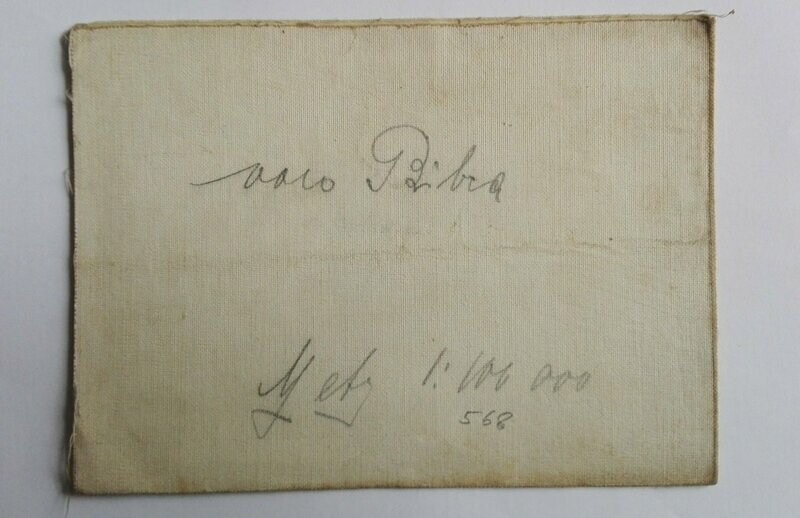 von Bibra
Metz 1:100 000
568